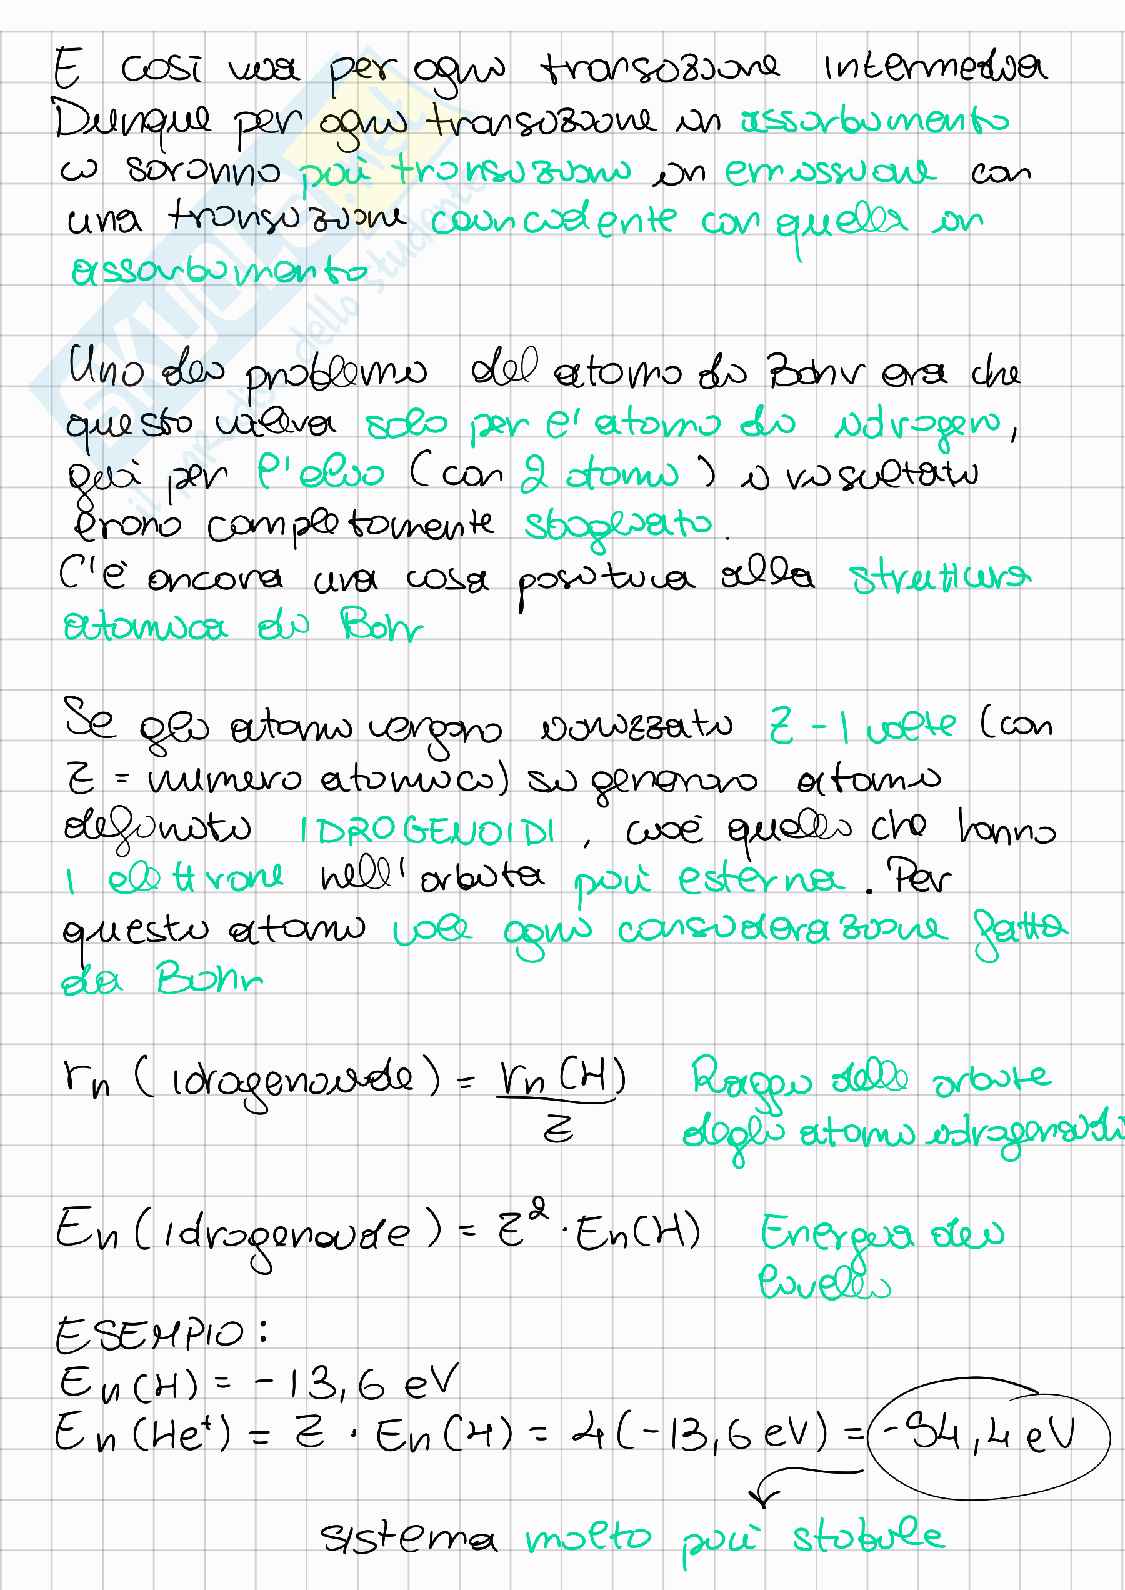 E così via per ogni transizione intermedia
Dunque per ogni transizione in assorbimento
ci saranno più transizioni in emissione con
una transizione coincidente con quella in
assorbimento
Uno dei problemi del atomo di Bohr era che
questo valeva solo per l'atomo di idrogeno,
già per l'elio (con 2 atomi) i risultati
erano completamente sbagliati.
C'è ancora una cosa positiva alla struttura
atomica di Bohr
Se gli atomi vengono ionizzati Z-1 volte (con
Z = numero atomico) si generano atomi
definiti IDROGENOIDI, cioè quelli che hanno
1 elettrone nell'orbita più esterna. Per
questi atomi vale ogni considerazione fatta
da Bohr
rn (idrogenoide) = rn(H)/Z Raggi delle orbite
degli atomi idrogenoidi
En (idrogenoide) = Z² · En(H) Energia dei
livelli
ESEMPIO:
En(H) = -13,6 eV
En(He⁺) = Z · En(H) = 4(-13,6 eV) = -54,4 eV
sistema molto più stabile
SKUOLA.net
dello studente